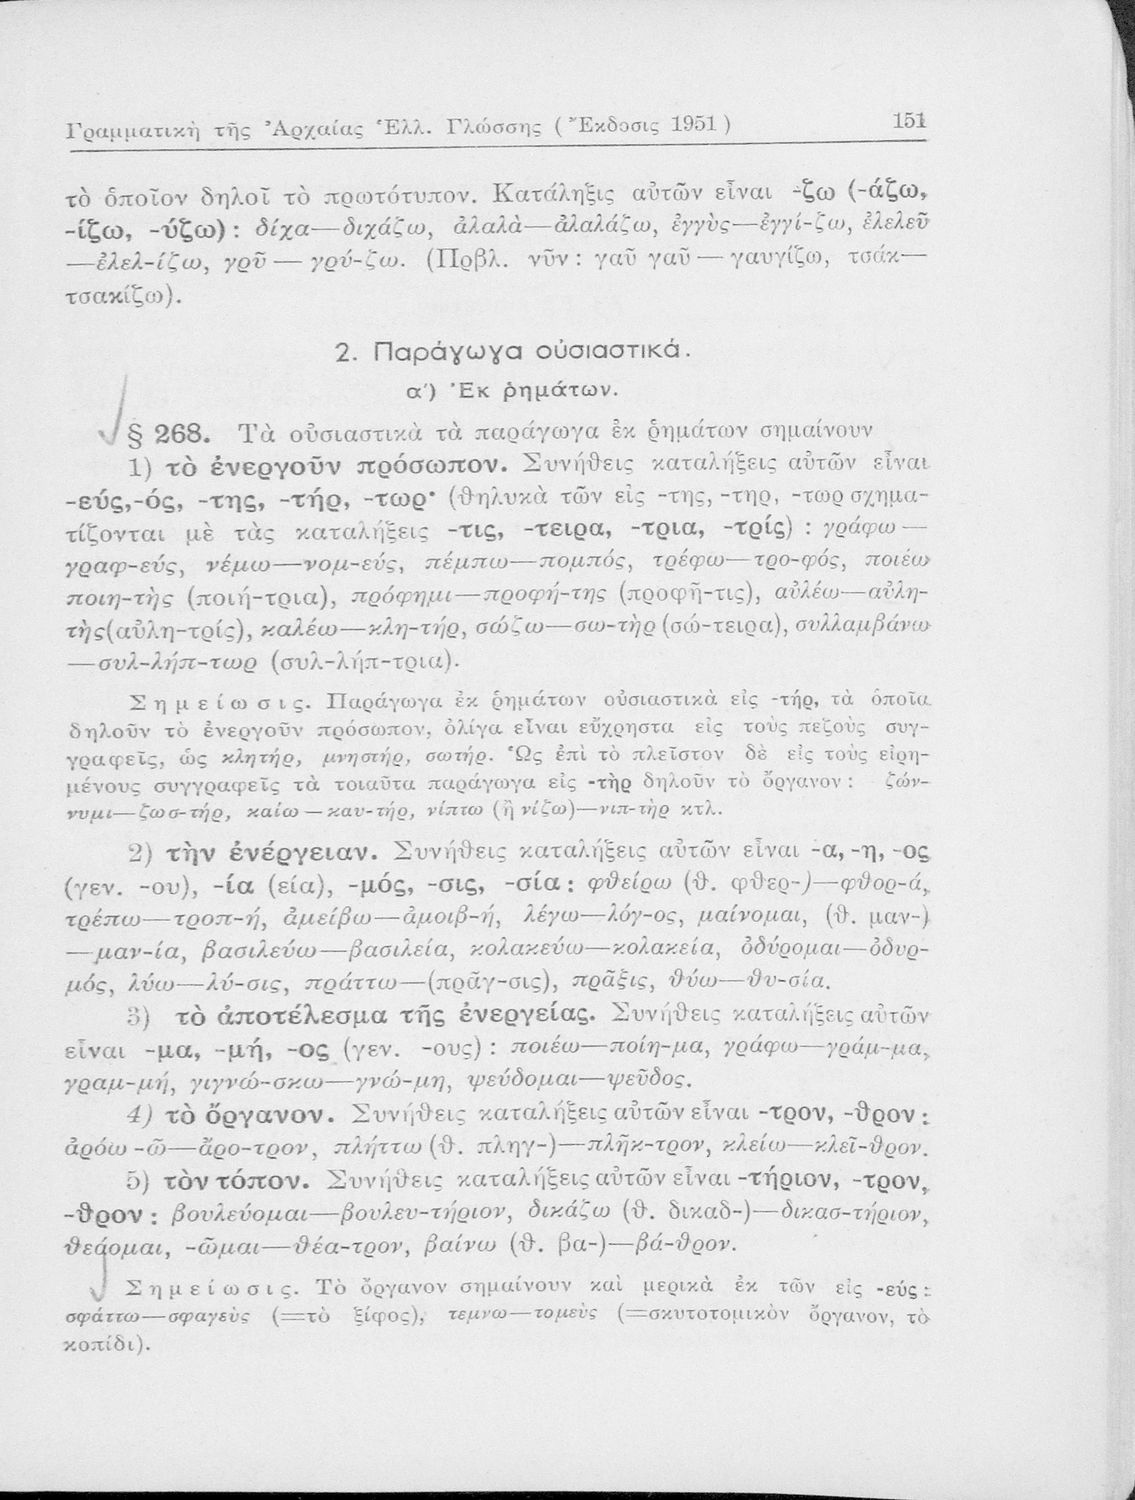 Γραμματικὴ τῆς Ἀρχαίας Ἑλλ. Γλώσσης (Ἔκδοσις 1951) 151
τὸ ὁποῖον δηλοῖ τὸ πρωτότυπον. Κατάληξις αὐτῶν εἶναι -ζω (-άζω,
-ίζω, -ύζω): δίχα—διχάζω, ἀλαλὰ—ἀλαλάζω, ἐγγὺς—ἐγγί-ζω, ἐλελεῦ
—ἐλελ-ίζω, γρῦ — γρύ-ζω. (Πρβλ. νῦν: γαῦ γαῦ — γαυγίζω, τσάκ—
τσακίζω).
2. Παράγωγα οὐσιαστικά.
α΄) Ἐκ ῥημάτων.
§ 268. Τὰ οὐσιαστικὰ τὰ παράγωγα ἐκ ῥημάτων σημαίνουν
1) τὸ ἐνεργοῦν πρόσωπον. Συνήθεις καταλήξεις αὐτῶν εἶναι
-εύς,-ός, -της, -τήρ, -τωρ· (θηλυκὰ τῶν εἰς -της, -τηρ, -τωρ σχημα-
τίζονται μὲ τὰς καταλήξεις -τις, -τειρα, -τρια, -τρίς) : γράφω —
γραφ-εύς, νέμω—νομ-εύς, πέμπω—πομπός, τρέφω—τρο-φός, ποιέω
ποιη-τὴς (ποιή-τρια), πρόφημι—προφή-της (προφῆ-τις), αὐλέω—αὐλη-
τὴς(αὐλη-τρίς), καλέω—κλη-τήρ, σώζω—σω-τὴρ (σώ-τειρα), συλλαμβάνω
—συλ-λήπ-τωρ (συλ-λήπ-τρια).
Σημείωσις. Παράγωγα ἐκ ῥημάτων οὐσιαστικὰ εἰς -τήρ, τὰ ὁποῖα
δηλοῦν τὸ ἐνεργοῦν πρόσωπον, ὀλίγα εἶναι εὔχρηστα εἰς τοὺς πεζοὺς συγ-
γραφεῖς, ὡς κλητήρ, μνηστήρ, σωτήρ. Ὡς ἐπὶ τὸ πλεῖστον δὲ εἰς τοὺς εἰρη-
μένους συγγραφεῖς τὰ τοιαῦτα παράγωγα εἰς -τὴρ δηλοῦν τὸ ὄργανον: ζών-
νυμι—ζωσ-τήρ, καίω—καυ-τήρ, νίπτω (ἢ νίζω)—νιπ-τὴρ κτλ.
2) τὴν ἐνέργειαν. Συνήθεις καταλήξεις αὐτῶν εἶναι -α, -η, -ος
(γεν. -ου), -ία (εία), -μός, -σις, -σία: φθείρω (θ. φθερ-)—φθορ-ά,
τρέπω—τροπ-ή, ἀμείβω—ἀμοιβ-ή, λέγω—λόγ-ος, μαίνομαι, (θ. μαν-)
—μαν-ία, βασιλεύω—βασιλεία, κολακεύω—κολακεία, ὀδύρομαι—ὀδυρ-
μός, λύω—λύ-σις, πράττω—(πρᾶγ-σις), πρᾶξις, θύω—θυ-σία.
3) τὸ ἀποτέλεσμα τῆς ἐνεργείας. Συνήθεις καταλήξεις αὐτῶν
εἶναι -μα, -μή, -ος (γεν. -ους): ποιέω—ποίη-μα, γράφω—γράμ-μα,
γραμ-μή, γιγνώ-σκω—γνώ-μη, ψεύδομαι—ψεῦδος.
4) τὸ ὄργανον. Συνήθεις καταλήξεις αὐτῶν εἶναι -τρον, -θρον:
ἀρόω -ῶ—ἄρο-τρον, πλήττω (θ. πληγ-)—πλῆκ-τρον, κλείω—κλεῖ-θρον.
5) τὸν τόπον. Συνήθεις καταλήξεις αὐτῶν εἶναι -τήριον, -τρον,
-θρον: βουλεύομαι—βουλευ-τήριον, δικάζω (θ. δικαδ-)—δικασ-τήριον,
θεάομαι, -ῶμαι—θέα-τρον, βαίνω (θ. βα-)—βά-θρον.
Σημείωσις. Τὸ ὄργανον σημαίνουν καὶ μερικὰ ἐκ τῶν εἰς -εύς:
σφάττω—σφαγεὺς (=τὸ ξίφος), τεμνω—τομεὺς (=σκυτοτομικὸν ὄργανον, τὸ
κοπίδι).